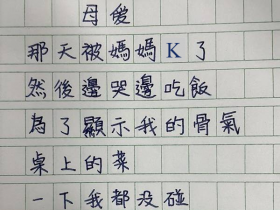 母愛
那天被媽媽K了
然後邊哭邊吃飯
為了顯示我的骨氣
桌上的菜
一下我都没碰